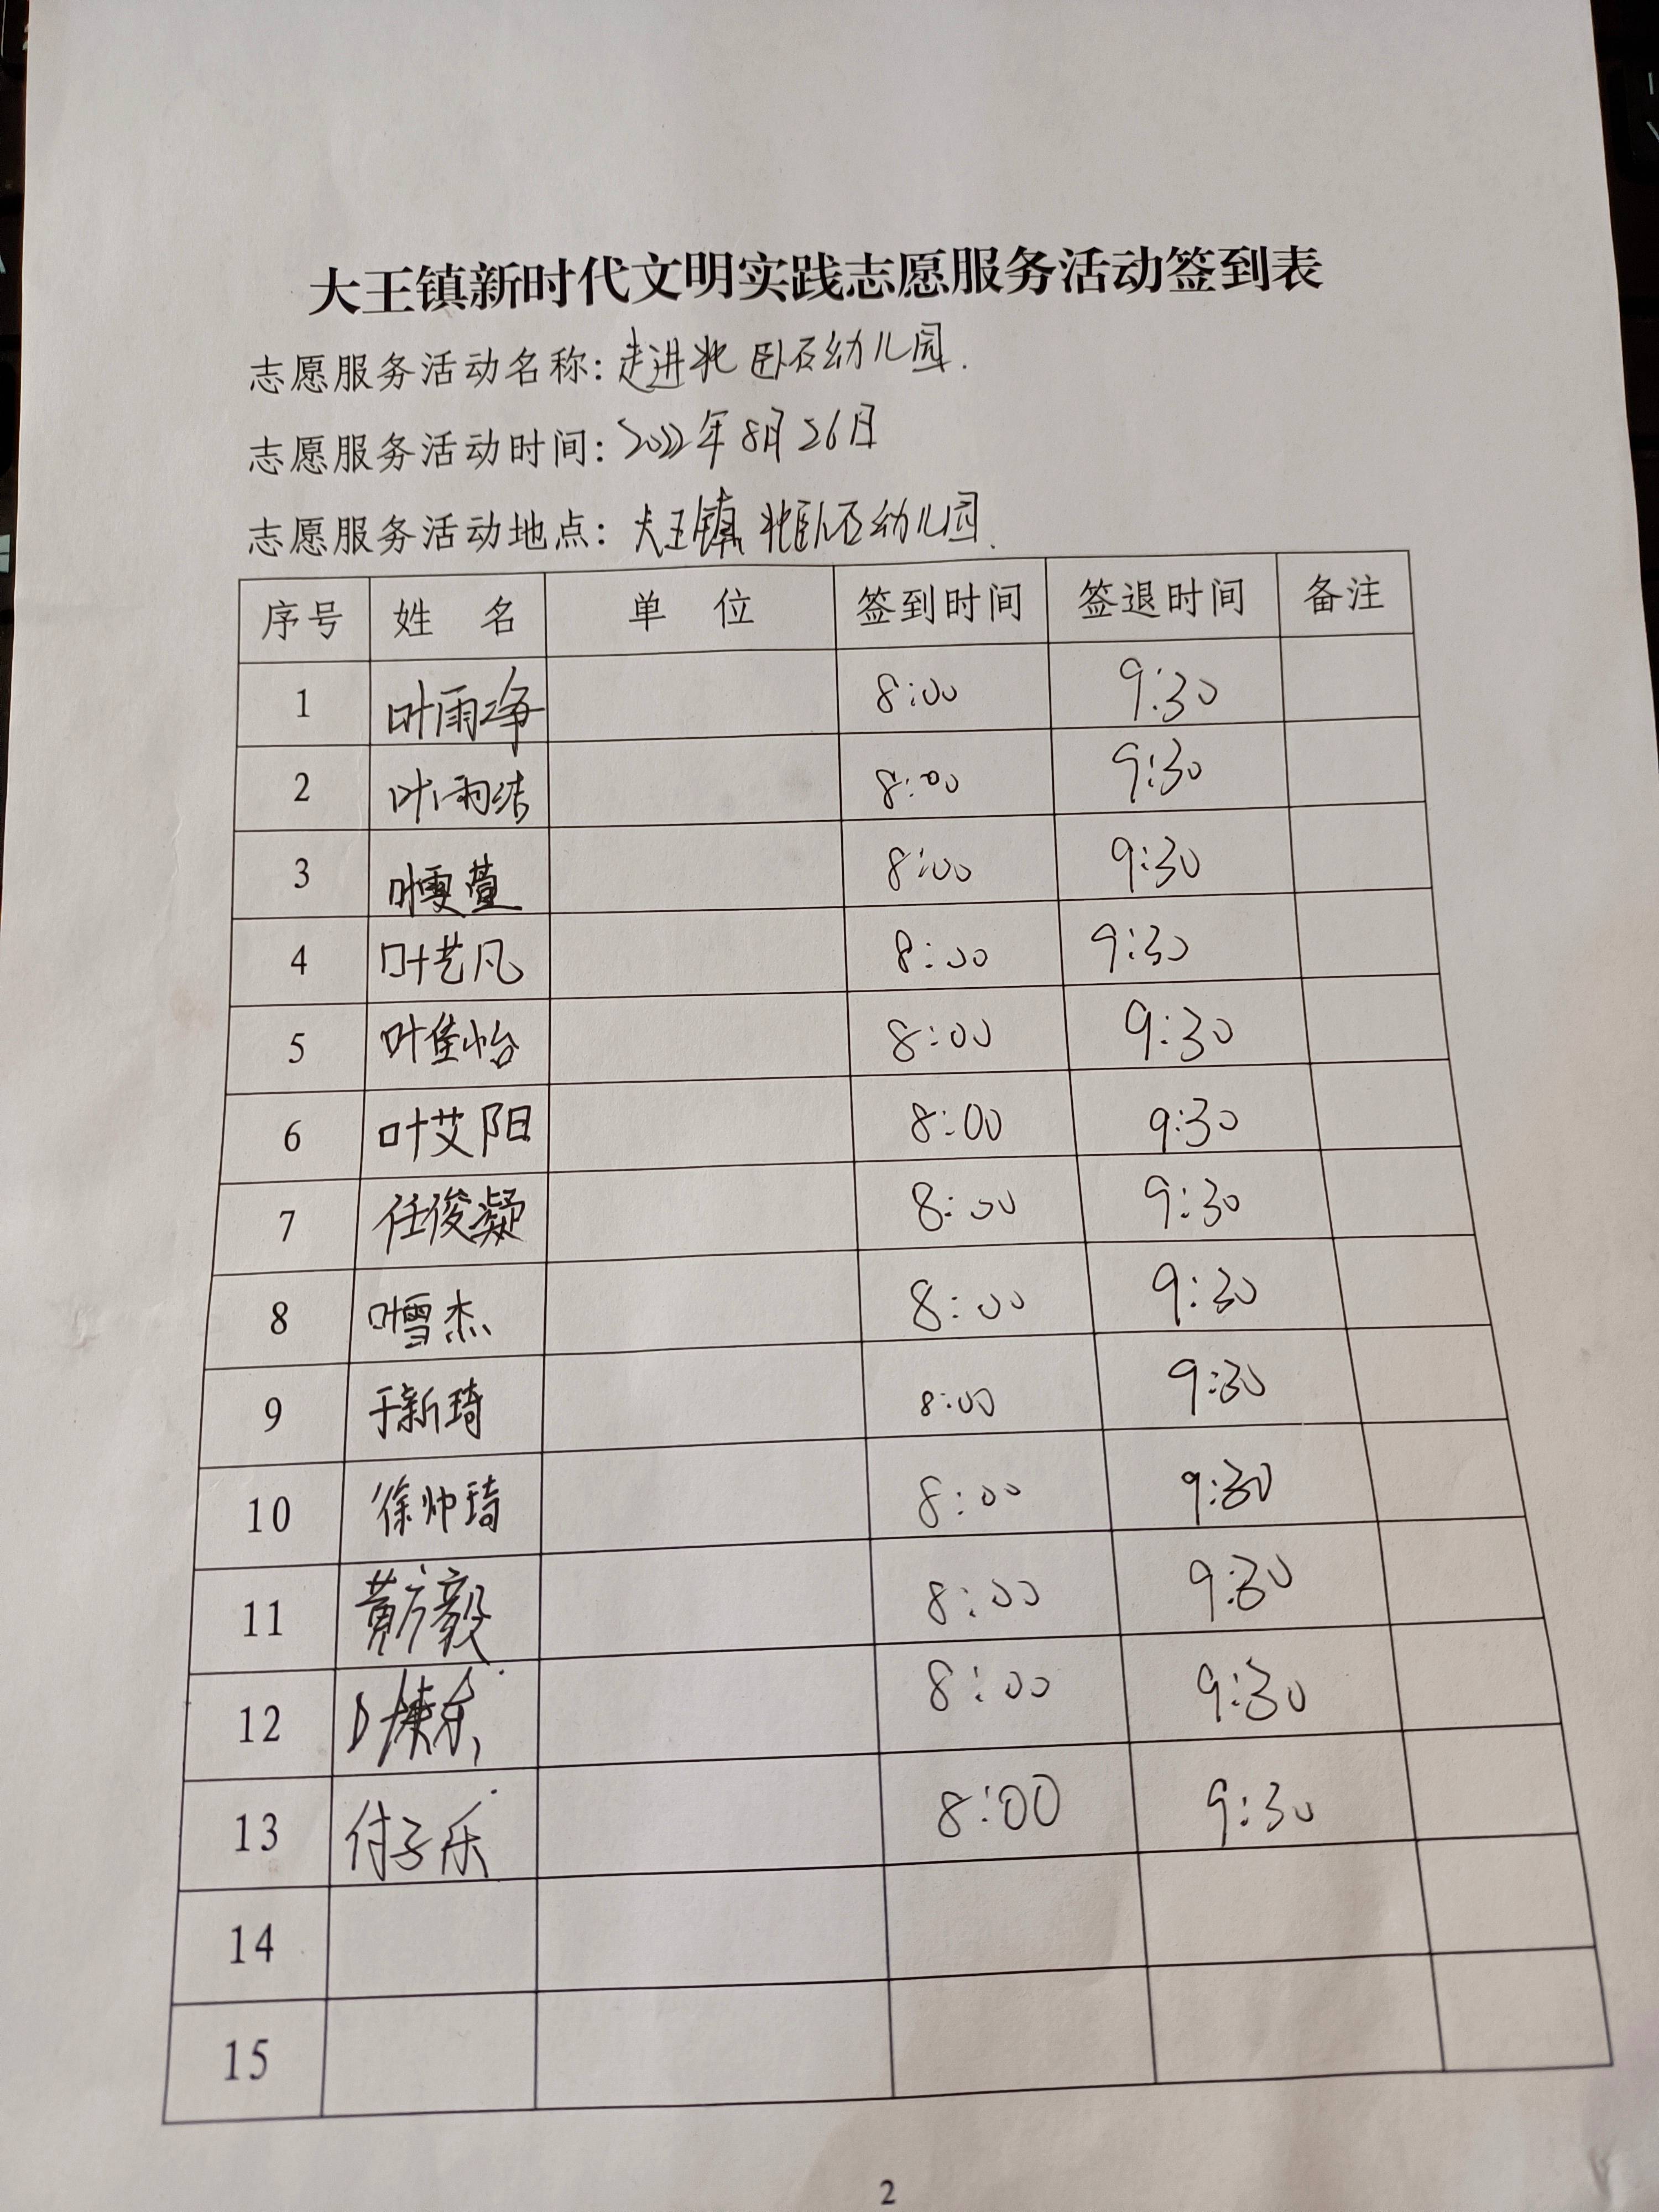 大王镇新时代文明实践志愿服务活动签到表
志愿服务活动名称: 走进北卧石幼儿园.
志愿服务活动时间: 2022年8月26日
志愿服务活动地点: 大王镇北卧石幼儿园.
序号 姓 名 单 位 签到时间 签退时间 备注
1 叶雨净 8:00 9:30
2 叶雨洁 8:00 9:30
3 叶雯萱 8:00 9:30
4 叶艺凡 8:00 9:30
5 叶佳怡 8:00 9:30
6 叶艾阳 8:00 9:30
7 任俊凝 8:00 9:30
8 叶雪杰 8:00 9:30
9 于新琦 8:00 9:30
10 徐帅琦 8:00 9:30
11 黄方毅 8:00 9:30
12 8:00 9:30
13 付子乐 8:00 9:30
14
15
2